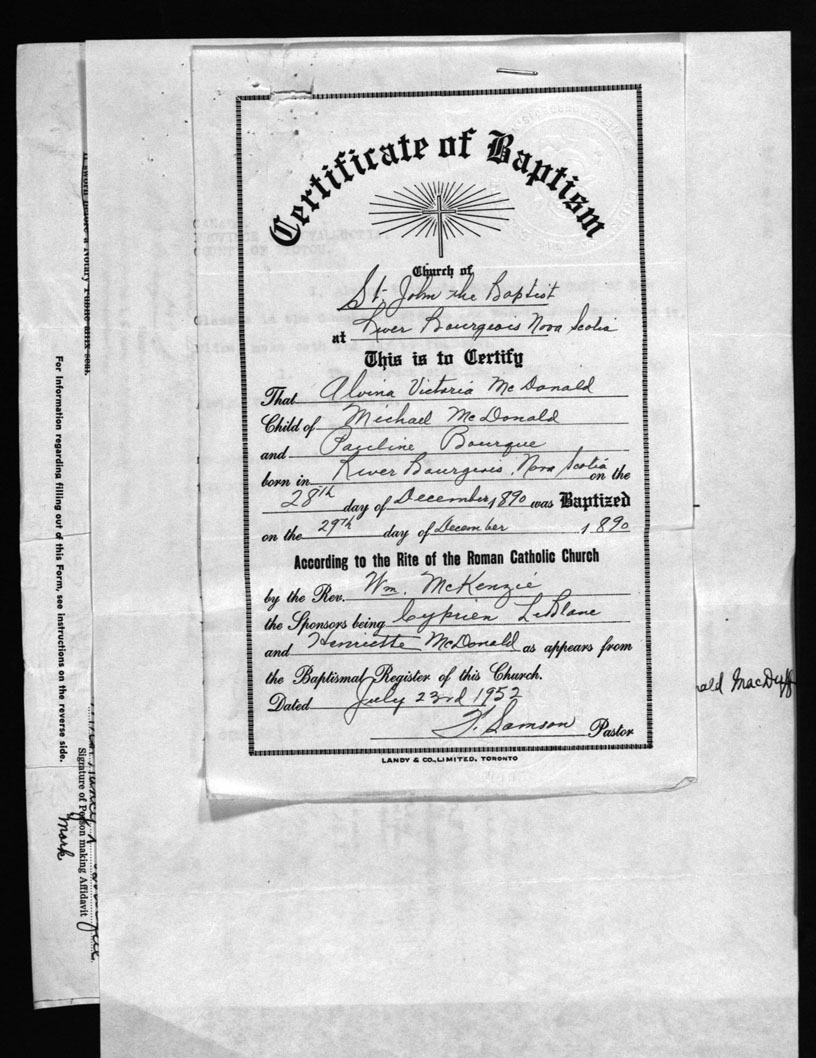 Certificate of Baptism
Church of
St. John the Baptist
at River Bourgeois Nova Scotia
This is to Certify
That Alvina Victoria McDonald
Child of Michael McDonald
and Pauline Bourque
born in River Bourgeois, Nova Scotia on the
28th day of December, 1890 was Baptized
on the 29th day of December 1890
According to the Rite of the Roman Catholic Church
by the Rev. Wm. McKenzie
the Sponsors being Cyprien LeBlanc
and Henriette McDonald as appears from
the Baptismal Register of this Church.
Dated July 23rd 1952
F. Samson Pastor
LANDY & CO., LIMITED, TORONTO
ald MacDuff
sworn before a Notary Public affix seal.
For Information regarding filling out of this Form, see instructions on the reverse side.
Signature of Person making Affidavit
Mark